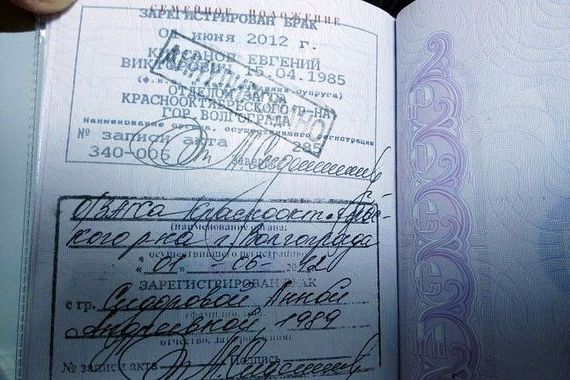 СЕМЕЙНОЕ ПОЛОЖЕНИЕ
ЗАРЕГИСТРИРОВАН БРАК
ИЮНЯ 2012 Г.
ЕВГЕНИЙ
15.04.1985
АННУЛИРОВАНО
супруга)
КРАСНООКТЯБРЬСКОГО Р-НА
ГОР. ВОЛГОГРАДА
Наименование органа, осуществившего регистрацию
№ записи акта 285
340-006
О/ЗАГСа Краснооктябрьс-
кого р-на г. Волгограда
(наименование органа,
осуществившего регистрацию)
"01" 06
ЗАРЕГИСТРИРОВАН БРАК
с гр. Сидоровой Анной
Андреевной, 1989
отчество, дата
№ записи акта
Подпись